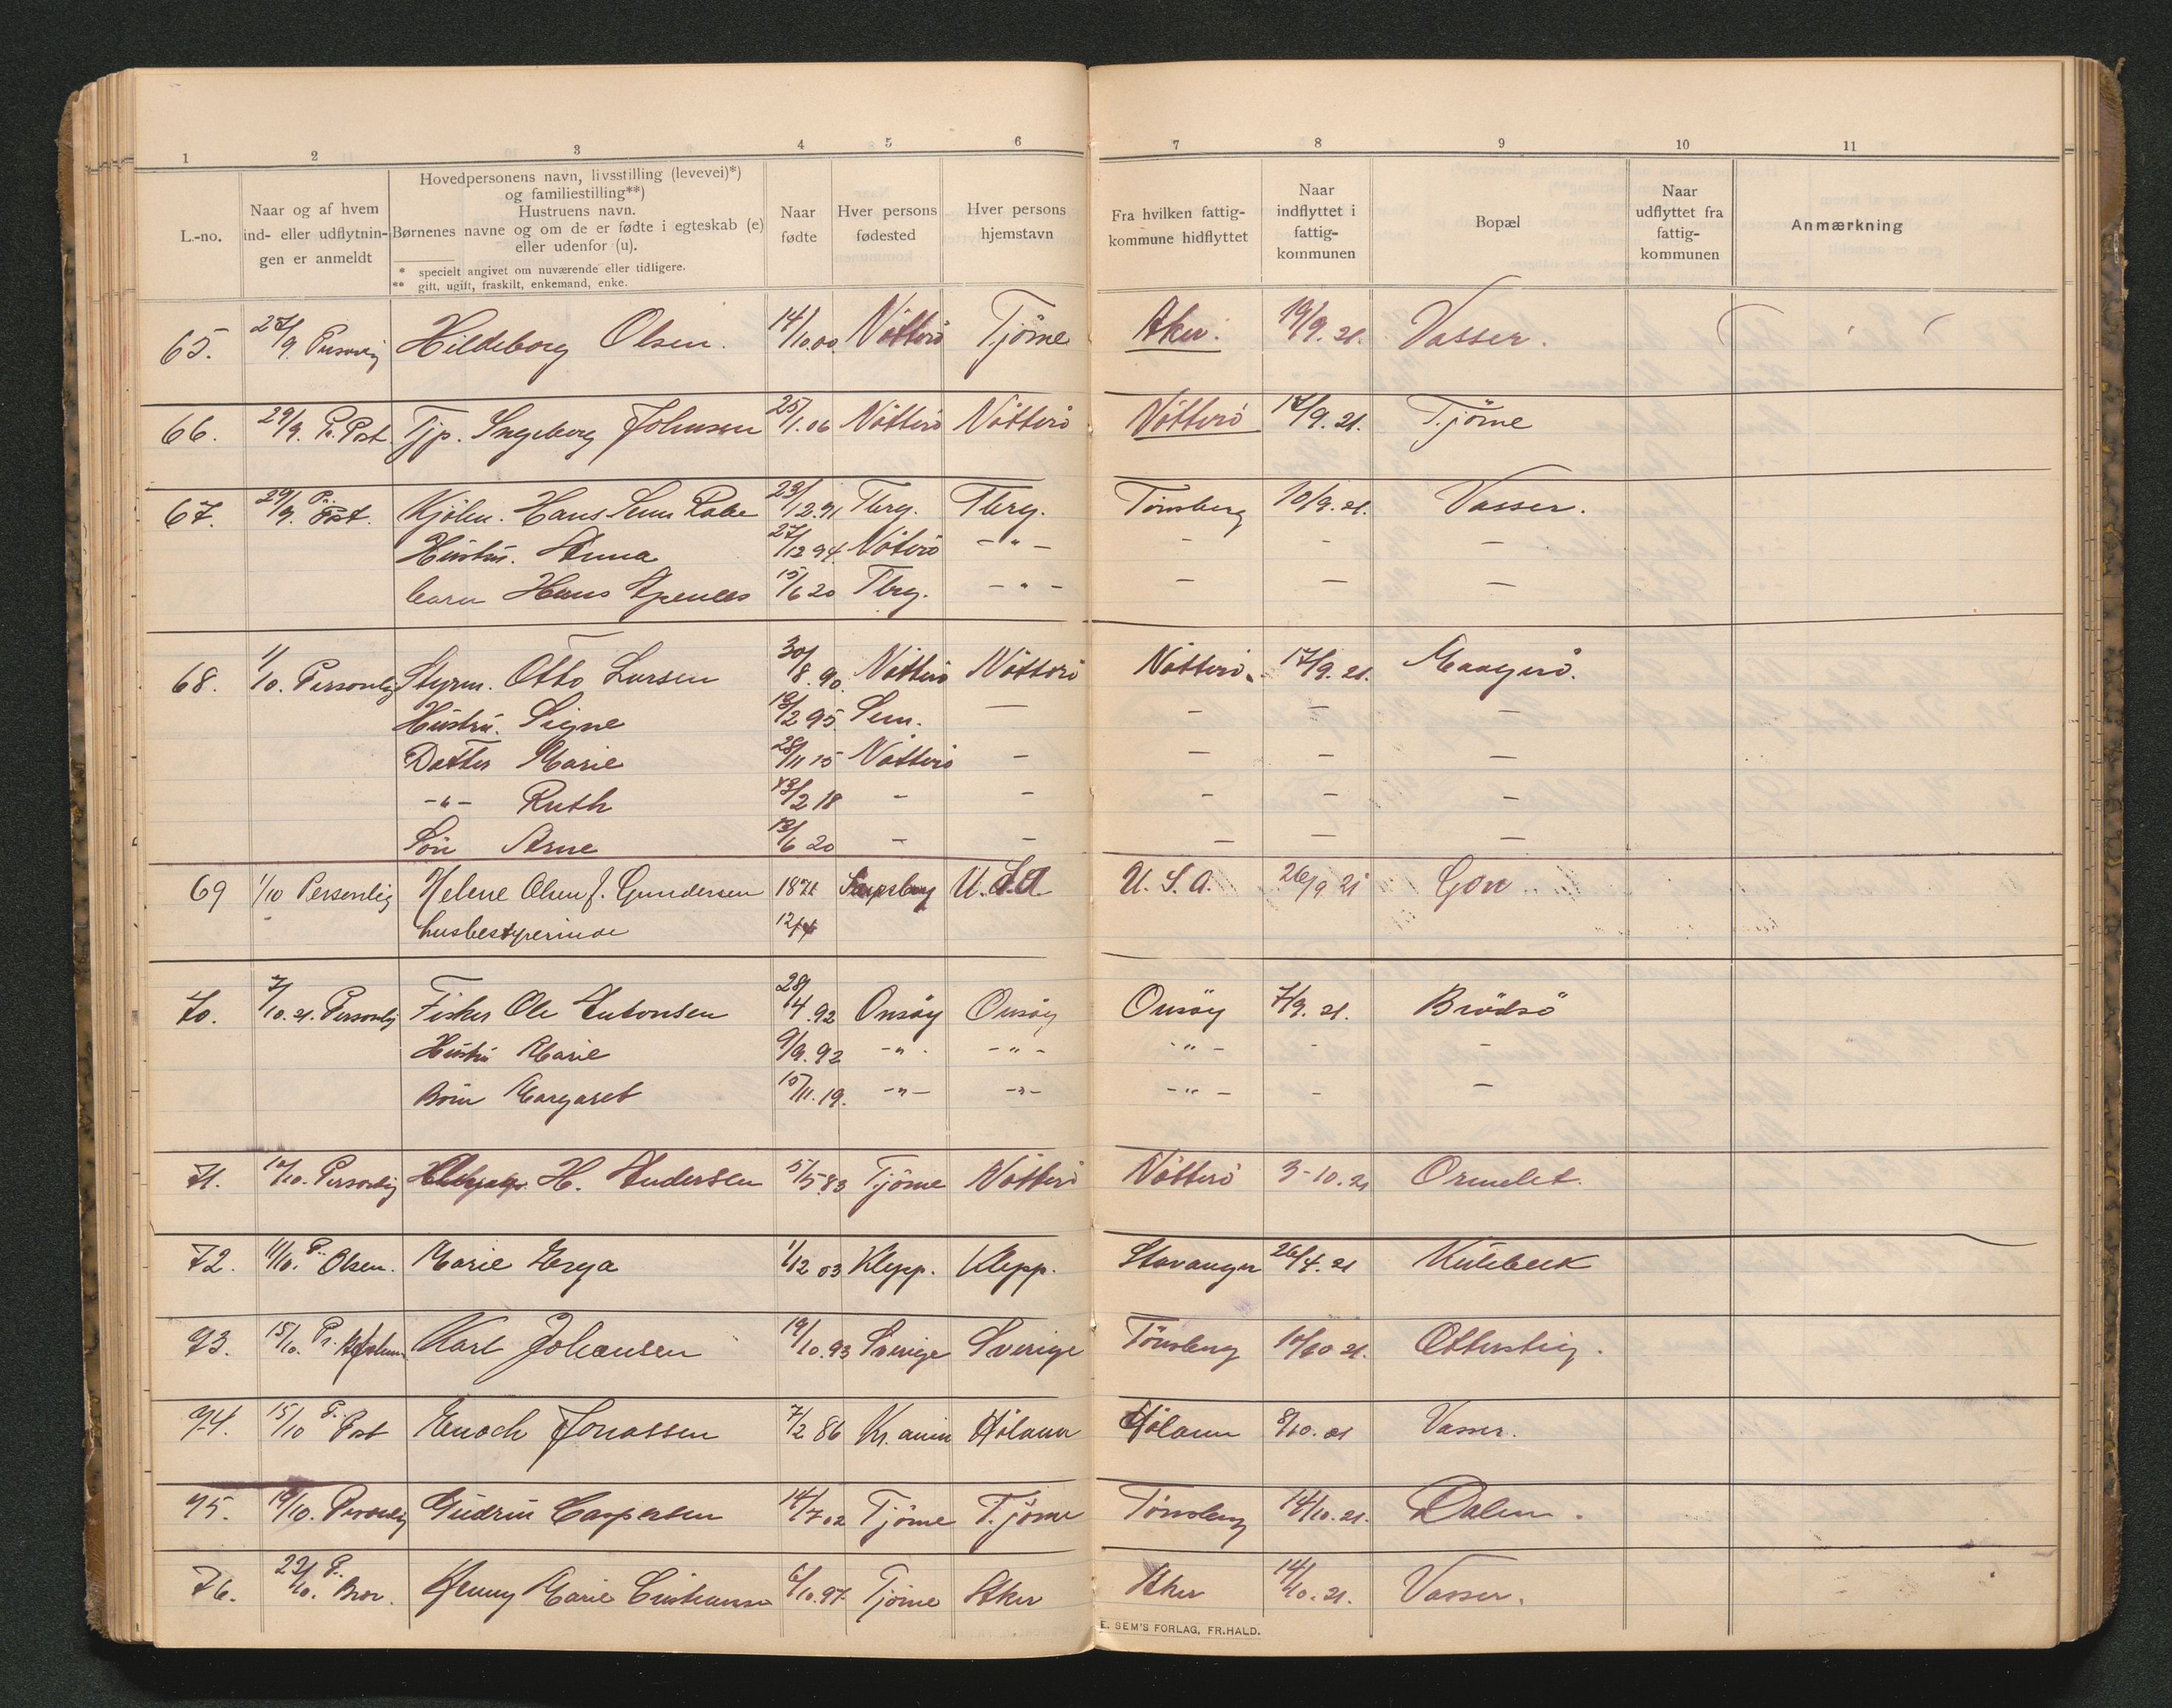 1 2 3 4 5 6 7 8 9 10 11
L.-no.
Naar og af hvem
ind- eller udflytnin-
gen er anmeldt
Hovedpersonens navn, livsstilling (levevei)*)
og familiestilling**)
Hustruens navn.
Børnenes navne og om de er fødte i egteskab (e)
eller udenfor (u).
* specielt angivet om nuværende eller tidligere.
** gift, ugift, fraskilt, enkemand, enke.
Naar
fødte
Hver persons
fødested
Hver persons
hjemstavn
Fra hvilken fattig-
kommune hidflyttet
Naar
indflyttet i
fattig-
kommunen
Bopæl
Naar
udflyttet fra
fattig-
kommunen
Anmærkning
65. 27/9. Personlig Hildeborg Olsen. 14/10.00. Nøtterö Tjöme Aker. 19/9. 21. Vasser.
66. 29/9. Pr. Post Tjp. Ingeborg Johnsen 25/1.06 Nötterö Nötterö Nötterö 17/9. 21. Tjöme
67. 29/9. Pr. Post. Kjölm. Hans 23/12.91 Tbrg. Tbrg. Tönsberg 10/9. 21. Vasser.
Hustru. Anna 27/12 94. Nötterö - " - - - -
barn Hans 15/6 20 Tbrg. - " - - - -
68. 1/10. Personlig Styrm. Otto Larsen 30/8. 90. Nötterö Nötterö Nötterö. 17/9. 21. Maagerö.
Hustru. Signe 18/2 95. Sem. - - - -
Datter Marie 28/11 15 Nötterö - - - -
-"- Ruth /2 18 - - - - -
Sön Arne 13/6 20 - - - - -
69 1/10 Personlig Helene Olsen f. Gundersen 1871 Sarpsborg U.S.A U.S.A. 26/9 21 Gon
husbestyrerinde 12/4
70. 7/10. 21. Personlig Fisker Ole Antonsen 28/4. 92 Onsöy Onsöy Onsöy 7/9. 21. Brödsö
Hustru Marie 9/9. 92 -"- -"- -"- - -
Börn Margaret 15/11. 19. -"- -"- -"- - -
71. /10. Personlig H. Andersen 5/5 83 Tjöme Nötterö Nötterö 3-10. 21 Ormelet.
72. 11/10. Pr. Olsen. Marie Erga 1/12 03 Klepp. Klepp. Stavanger 26/4. 21 Kulebæk
73. 15/10. Pr. Karl Johansen 19/10. 93 Sverige Sverige Tönsberg 10/10 21. Ottersbig.
74. 15/10 Pr. Post Enoch Jonassen 7/2 86 Kr.ania Höland Höland 8/10. 21 Vasser.
75. 19/10. Personlig Gudrun Caspersen 14/7 02 Tjöme Tjöme Tönsberg 14/10. 21. Dalen.
76. 22/10. Pr. Bror. Jenny Marie Cristiansen 6/10. 97. Tjöme Aker Aker 14/10. 21. Vasser.
E. SEM'S FORLAG, FR.HALD.